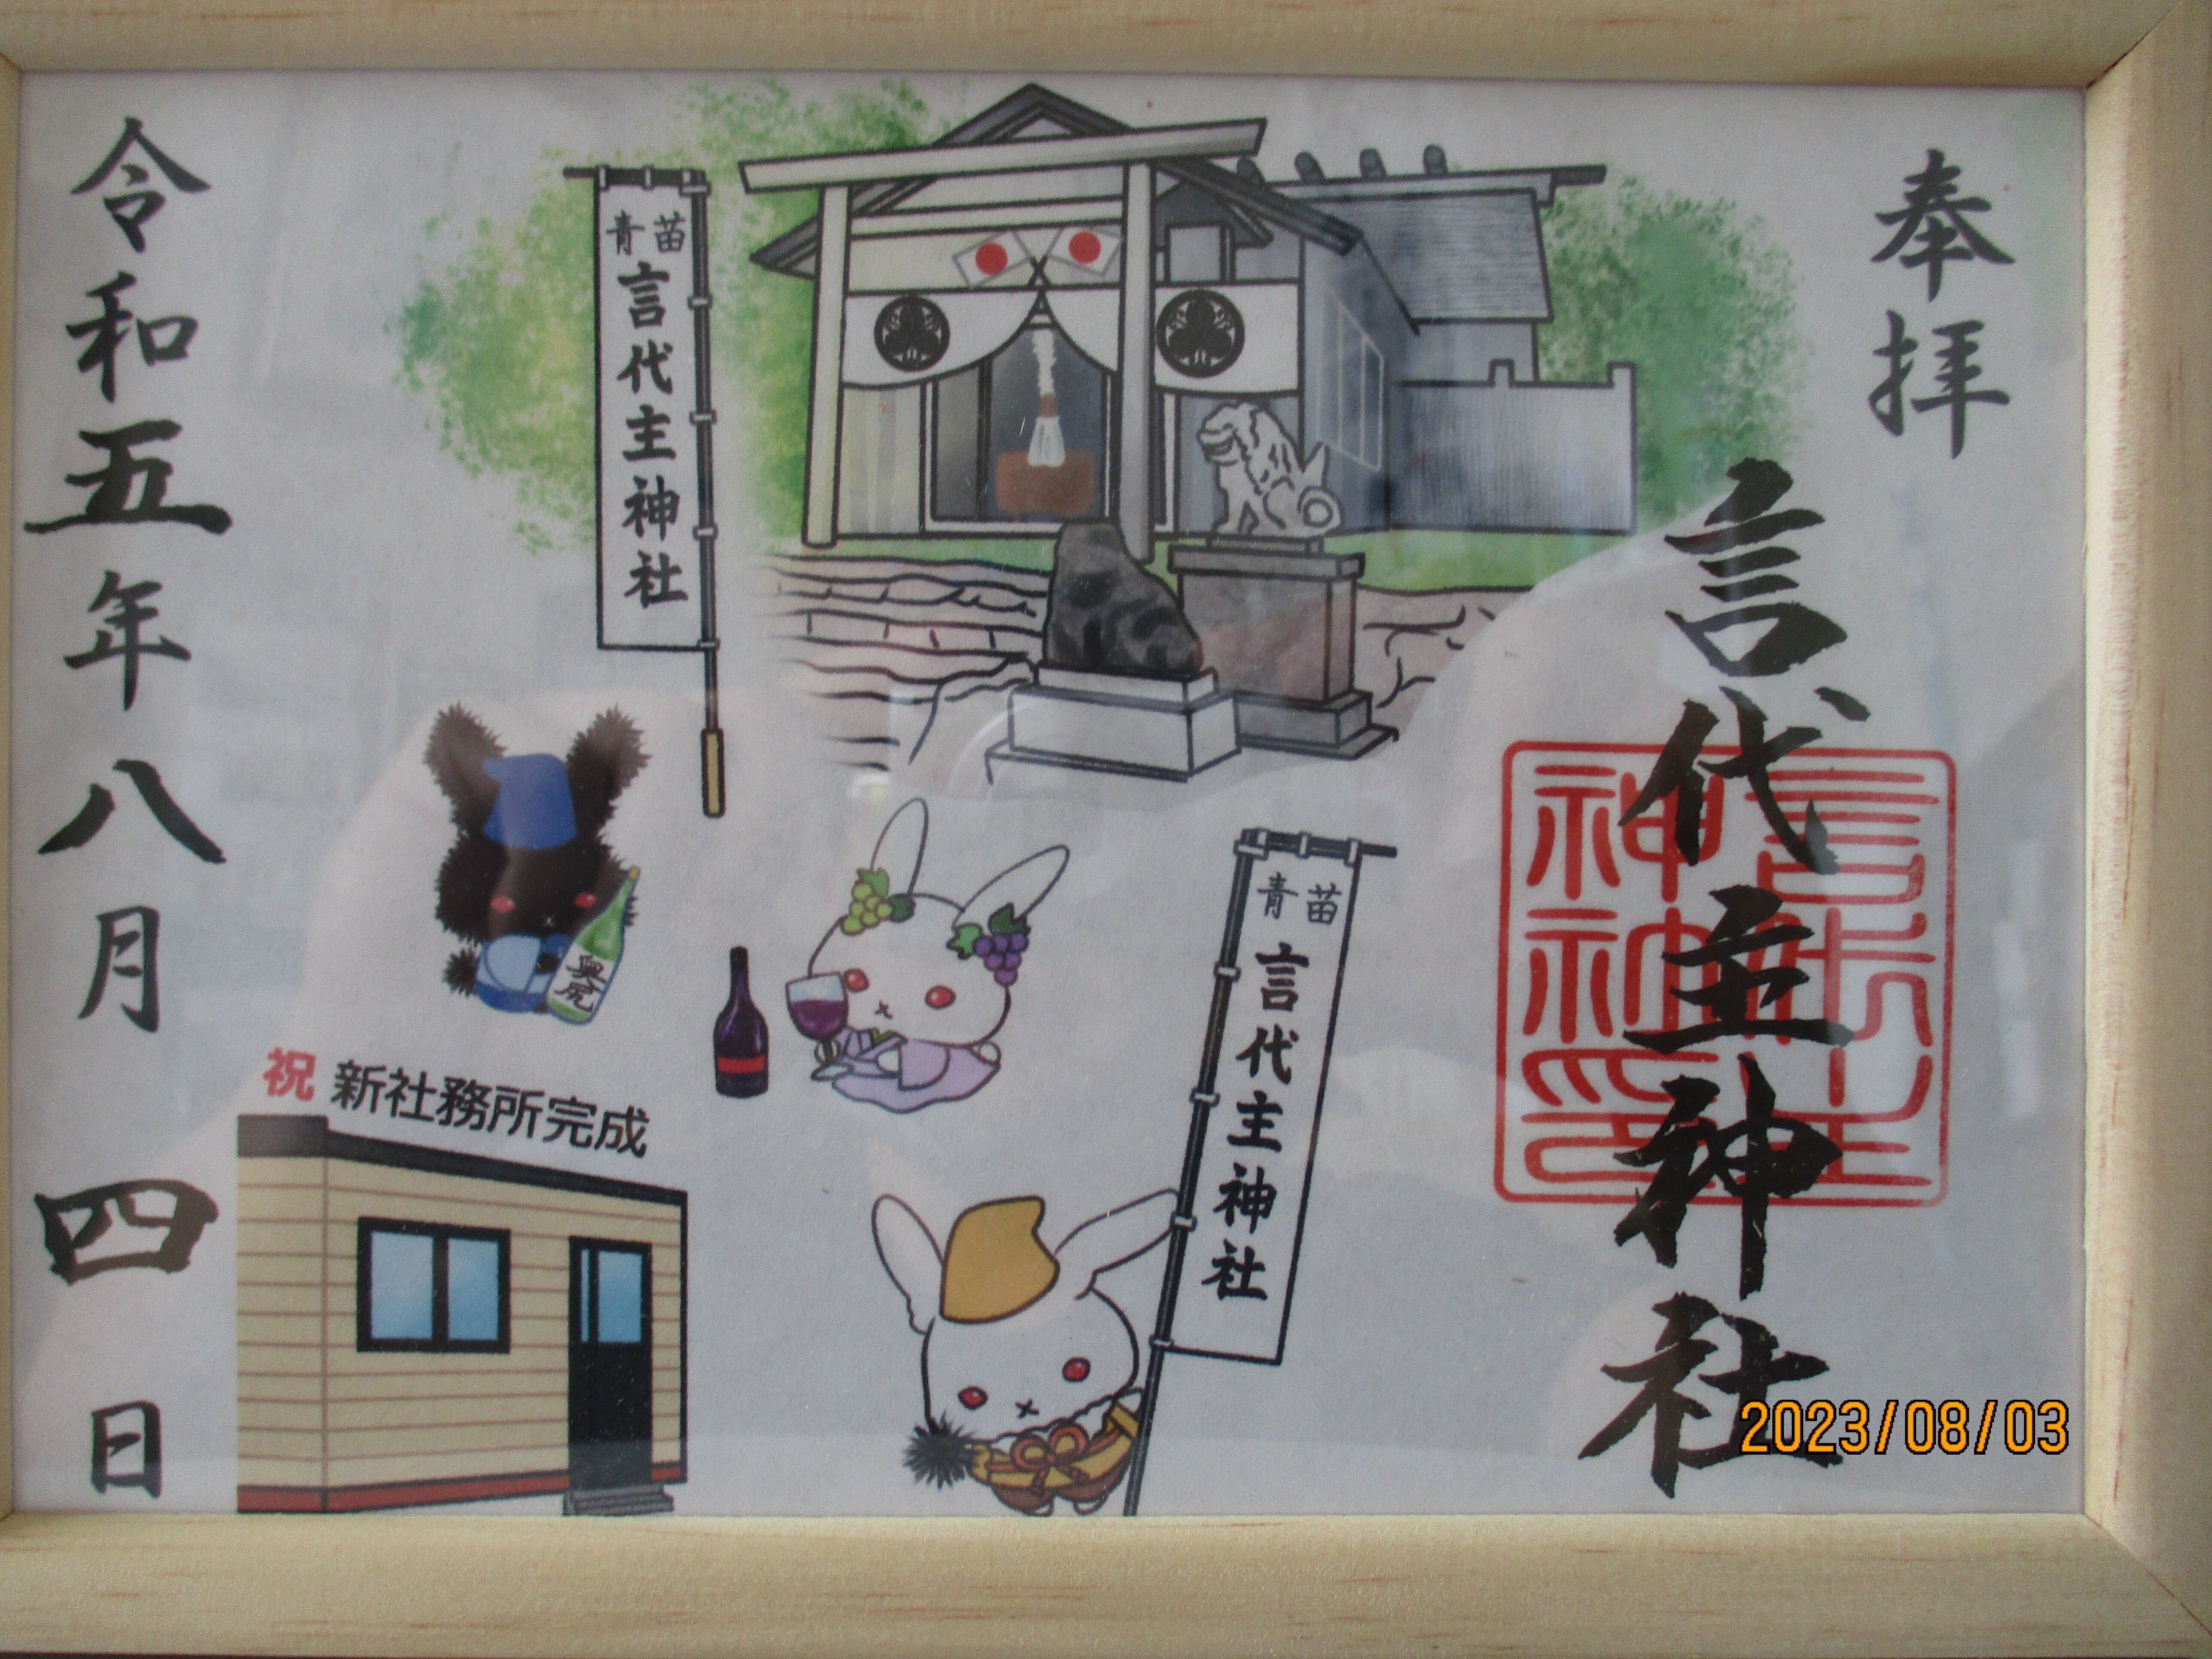 奉拝
言代主神社
言代主神社印
青苗
言代主神社
青苗
言代主神社
奥尻
祝 新社務所完成
令和五年八月四日
2023/08/03